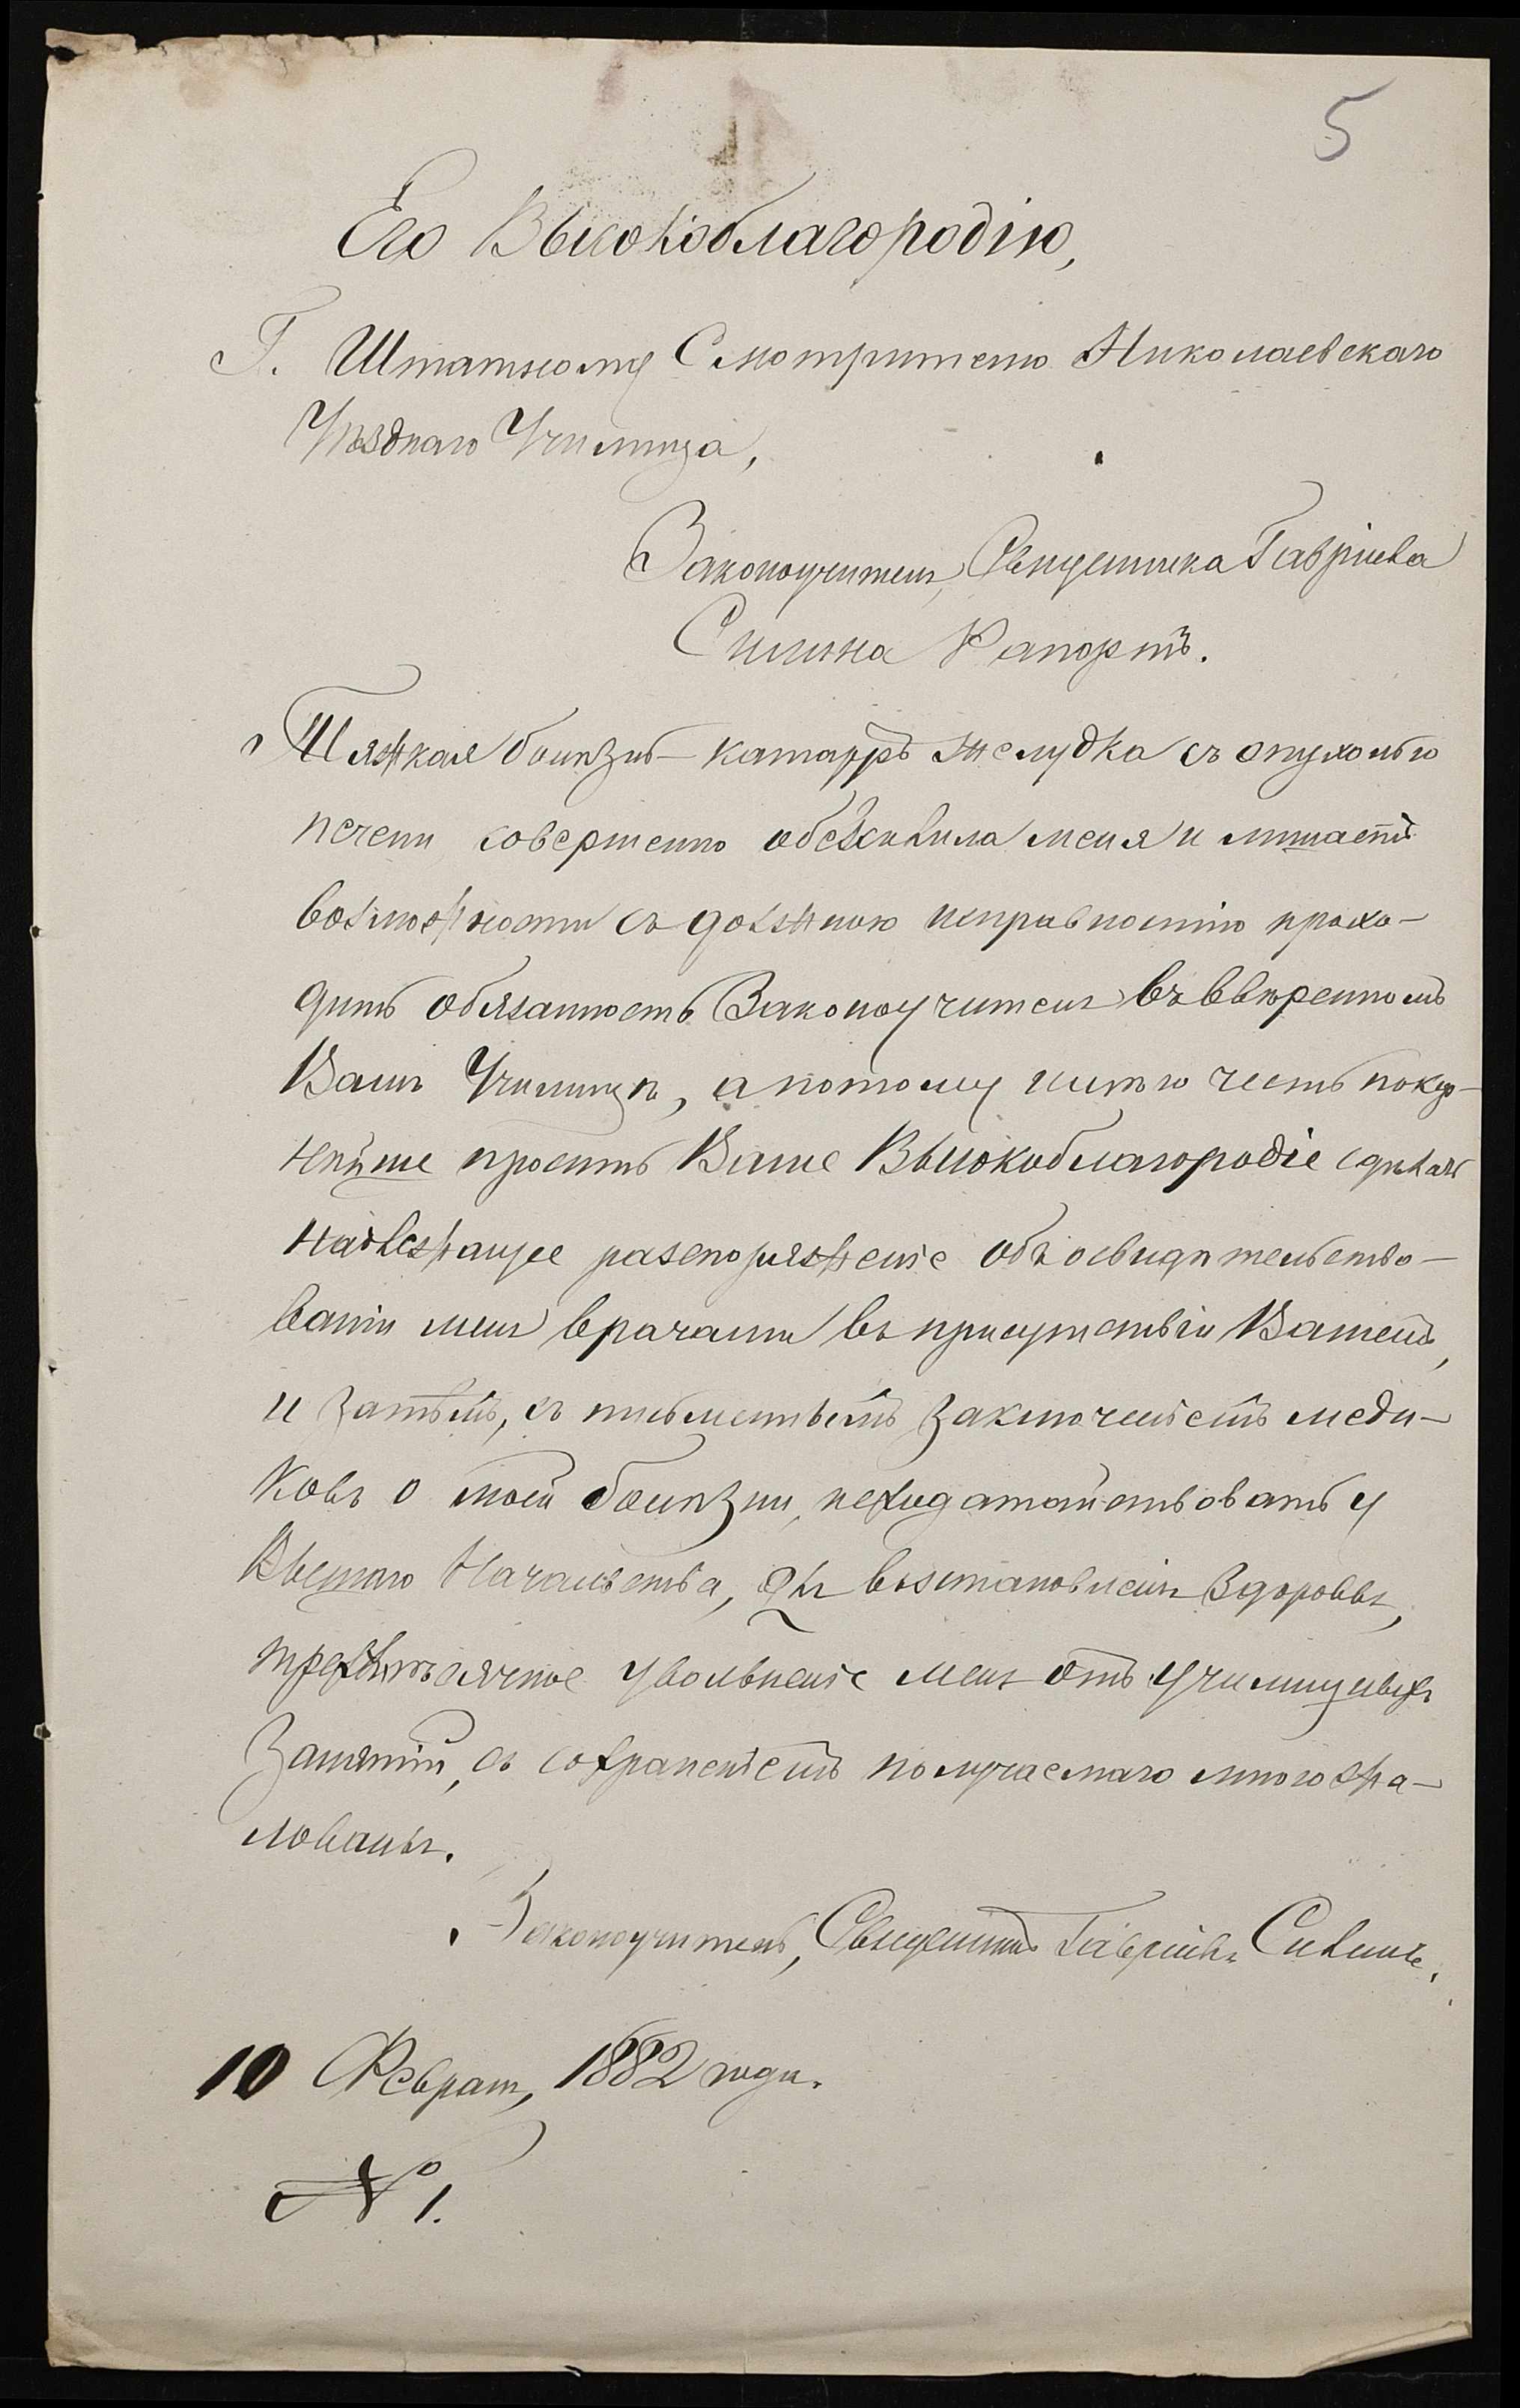 5
Его Высокоблагородію,
Г. Штатному Смотрителю Николаевскаго
Уѣзднаго Училища,
Законоучителя, Священника Гавріила
Силина Рапортъ.
Тяжкая болѣзнь – катарръ желудка съ опухолью
печени совершенно обезсилила меня и лишаетъ
возможности съ должною исправностію прохо-
дить обязанность Законоучителя въ ввѣренномъ
Вамъ Училищѣ, а потому имѣю честь покор-
нѣйше просить Ваше Высокоблагородіе сдѣлать
надлежащее распоряженіе объ освидѣтельство-
ваніи меня врачами въ присутствіи Вашемъ,
и затѣмъ, съ письменнымъ заключеніемъ меди-
ковъ о моей болѣзни, исходатайствовать у
Высшаго Начальства, для возстановленія здоровья,
трехмѣсячное увольненіе меня отъ училищныхъ
занятій, съ сохраненіемъ получаемаго мною жа-
лованья.
Законоучитель, Священникъ Гавріилъ Силинъ.
10 Февраля, 1882 года.
№ 1.